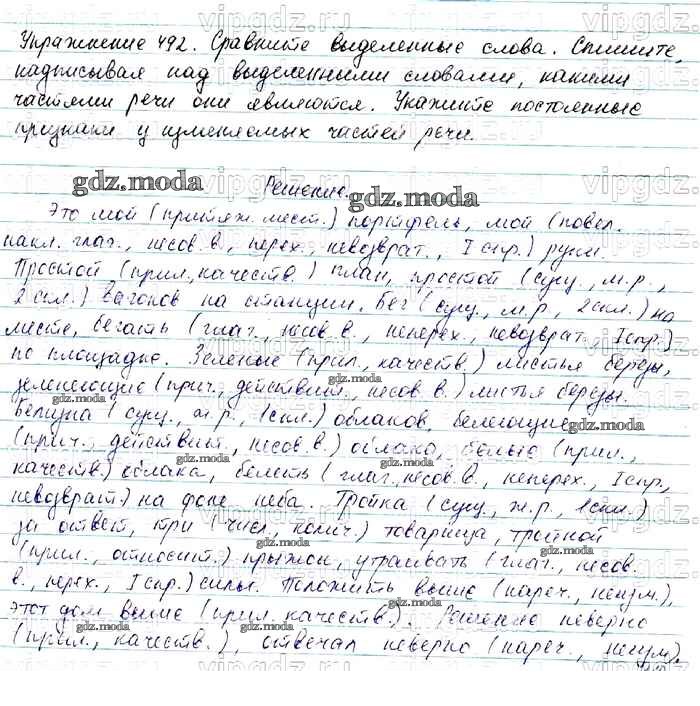 Упражнение 492. Сравните выделенные слова. Спишите,
надписывая над выделенными словами, какими
частями речи они являются. Укажите постоянные
признаки у изменяемых частей речи.
Решение.
Это мой (притяж. мест.) портфель, мой (повел.
накл. глаг., несов. в., перех., невозврат., I спр.) руки.
Простой (прил., качеств.) план, простой (сущ., м.р.,
2 скл.) вагонов на станции. Бег (сущ., м.р., 2 скл.) на
месте, бегать (глаг., несов. в., неперех., невозврат., I спр.)
по площадке. Зеленые (прил., качеств.) листья березы,
зеленеющие (прич., действит., несов. в.) листья березы.
Белизна (сущ., ж.р., 1 скл.) облаков, белеющие
(прич., действит., несов. в.) облака, белые (прил.,
качеств.) облака, белеть (глаг. несов. в., неперех., I спр.,
невозврат.) на фоне неба. Тройка (сущ., ж.р., 1 скл.)
за ответ, три (числ., колич.) товарища, тройной
(прил., относит.) прыжок, утраивать (глаг., несов.
в., перех., I спр.) силы. Положить выше (нареч., неизм.),
этот дом выше (прил., качеств.). Решение неверно
(прил., качеств.), отвечал неверно (нареч., неизм.).
gdz.moda
gdz.moda
gdz.moda
gdz.moda
gdz.moda
gdz.moda
gdz.moda
gdz.moda
gdz.moda
gdz.moda
gdz.moda